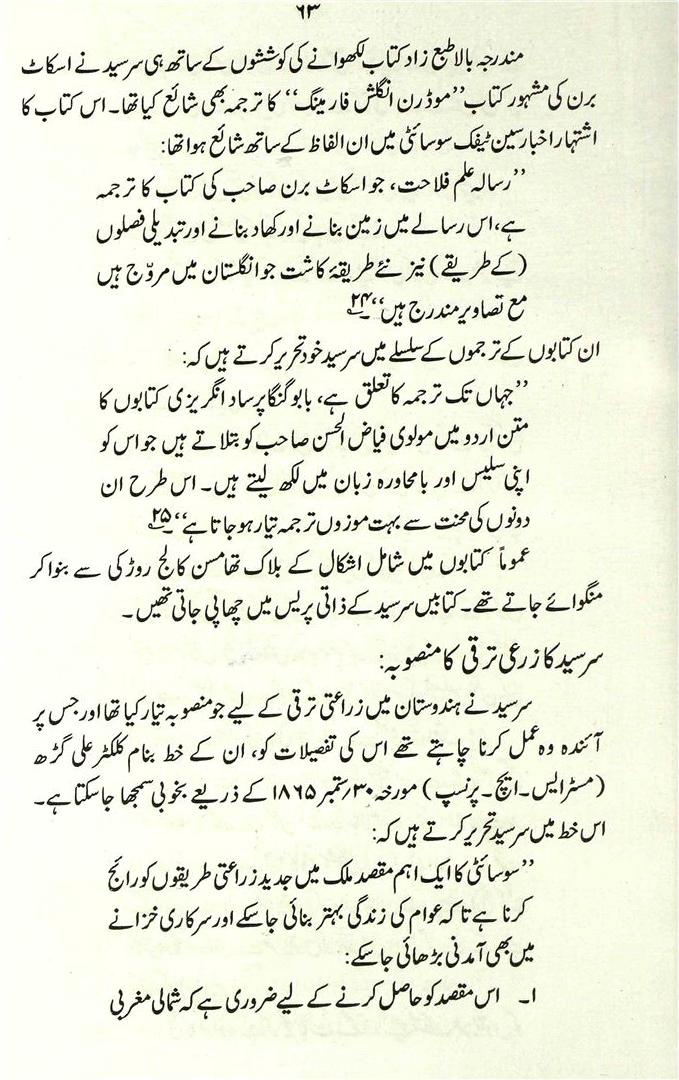 ۶۳
مندرجہ بالا طبع زاد کتاب لکھوانے کی کوششوں کے ساتھ ہی سرسید نے اسکاٹ
برن کی مشہور کتاب ’’موڈرن انگلش فارمینگ‘‘ کا ترجمہ بھی شائع کیا تھا۔ اس کتاب کا
اشتہار اخبار سین ٹیفک سوسائٹی میں ان الفاظ کے ساتھ شائع ہوا تھا:
’’رسالہ علم فلاحت، جو اسکاٹ برن صاحب کی کتاب کا ترجمہ
ہے، اس رسالے میں زمین بنانے اور کھاد بنانے اور تبدیلی فصلوں
(کے طریقے) نیز نئے طریقۂ کاشت جو انگلستان میں مروّج ہیں
مع تصاویر مندرج ہیں‘‘۔۲۴
ان کتابوں کے ترجموں کے سلسلے میں سرسید خود تحریر کرتے ہیں کہ:
’’جہاں تک ترجمہ کا تعلق ہے، بابو گنگا پرساد انگریزی کتابوں کا
متن اردو میں مولوی فیاض الحسن صاحب کو بتلاتے ہیں جو اس کو
اپنی سلیس اور بامحاورہ زبان میں لکھ لیتے ہیں۔ اس طرح ان
دونوں کی محنت سے بہت موزوں ترجمہ تیار ہو جاتا ہے‘‘۔۲۵
عموماً کتابوں میں شامل اشکال کے بلاک تھامسن کالج روڑکی سے بنوا کر
منگوائے جاتے تھے۔ کتابیں سرسید کے ذاتی پریس میں چھاپی جاتی تھیں۔
سرسید کا زرعی ترقی کا منصوبہ:
سرسید نے ہندوستان میں زراعتی ترقی کے لیے جو منصوبہ تیار کیا تھا اور جس پر
آئندہ وہ عمل کرنا چاہتے تھے اس کی تفصیلات کو، ان کے خط بنام کلکٹر علی گڑھ
(مسٹر ایس۔ ایچ۔ پرنسپ) مورخہ ۳۰؍ستمبر ۱۸۶۵ کے ذریعے بخوبی سمجھا جا سکتا ہے۔
اس خط میں سرسید تحریر کرتے ہیں کہ:
’’سوسائٹی کا ایک اہم مقصد ملک میں جدید زراعتی طریقوں کو رائج
کرنا ہے تا کہ عوام کی زندگی بہتر بنائی جا سکے اور سرکاری خزانے
میں بھی آمدنی بڑھائی جا سکے:
۱۔ اس مقصد کو حاصل کرنے کے لیے ضروری ہے کہ شمالی مغربی